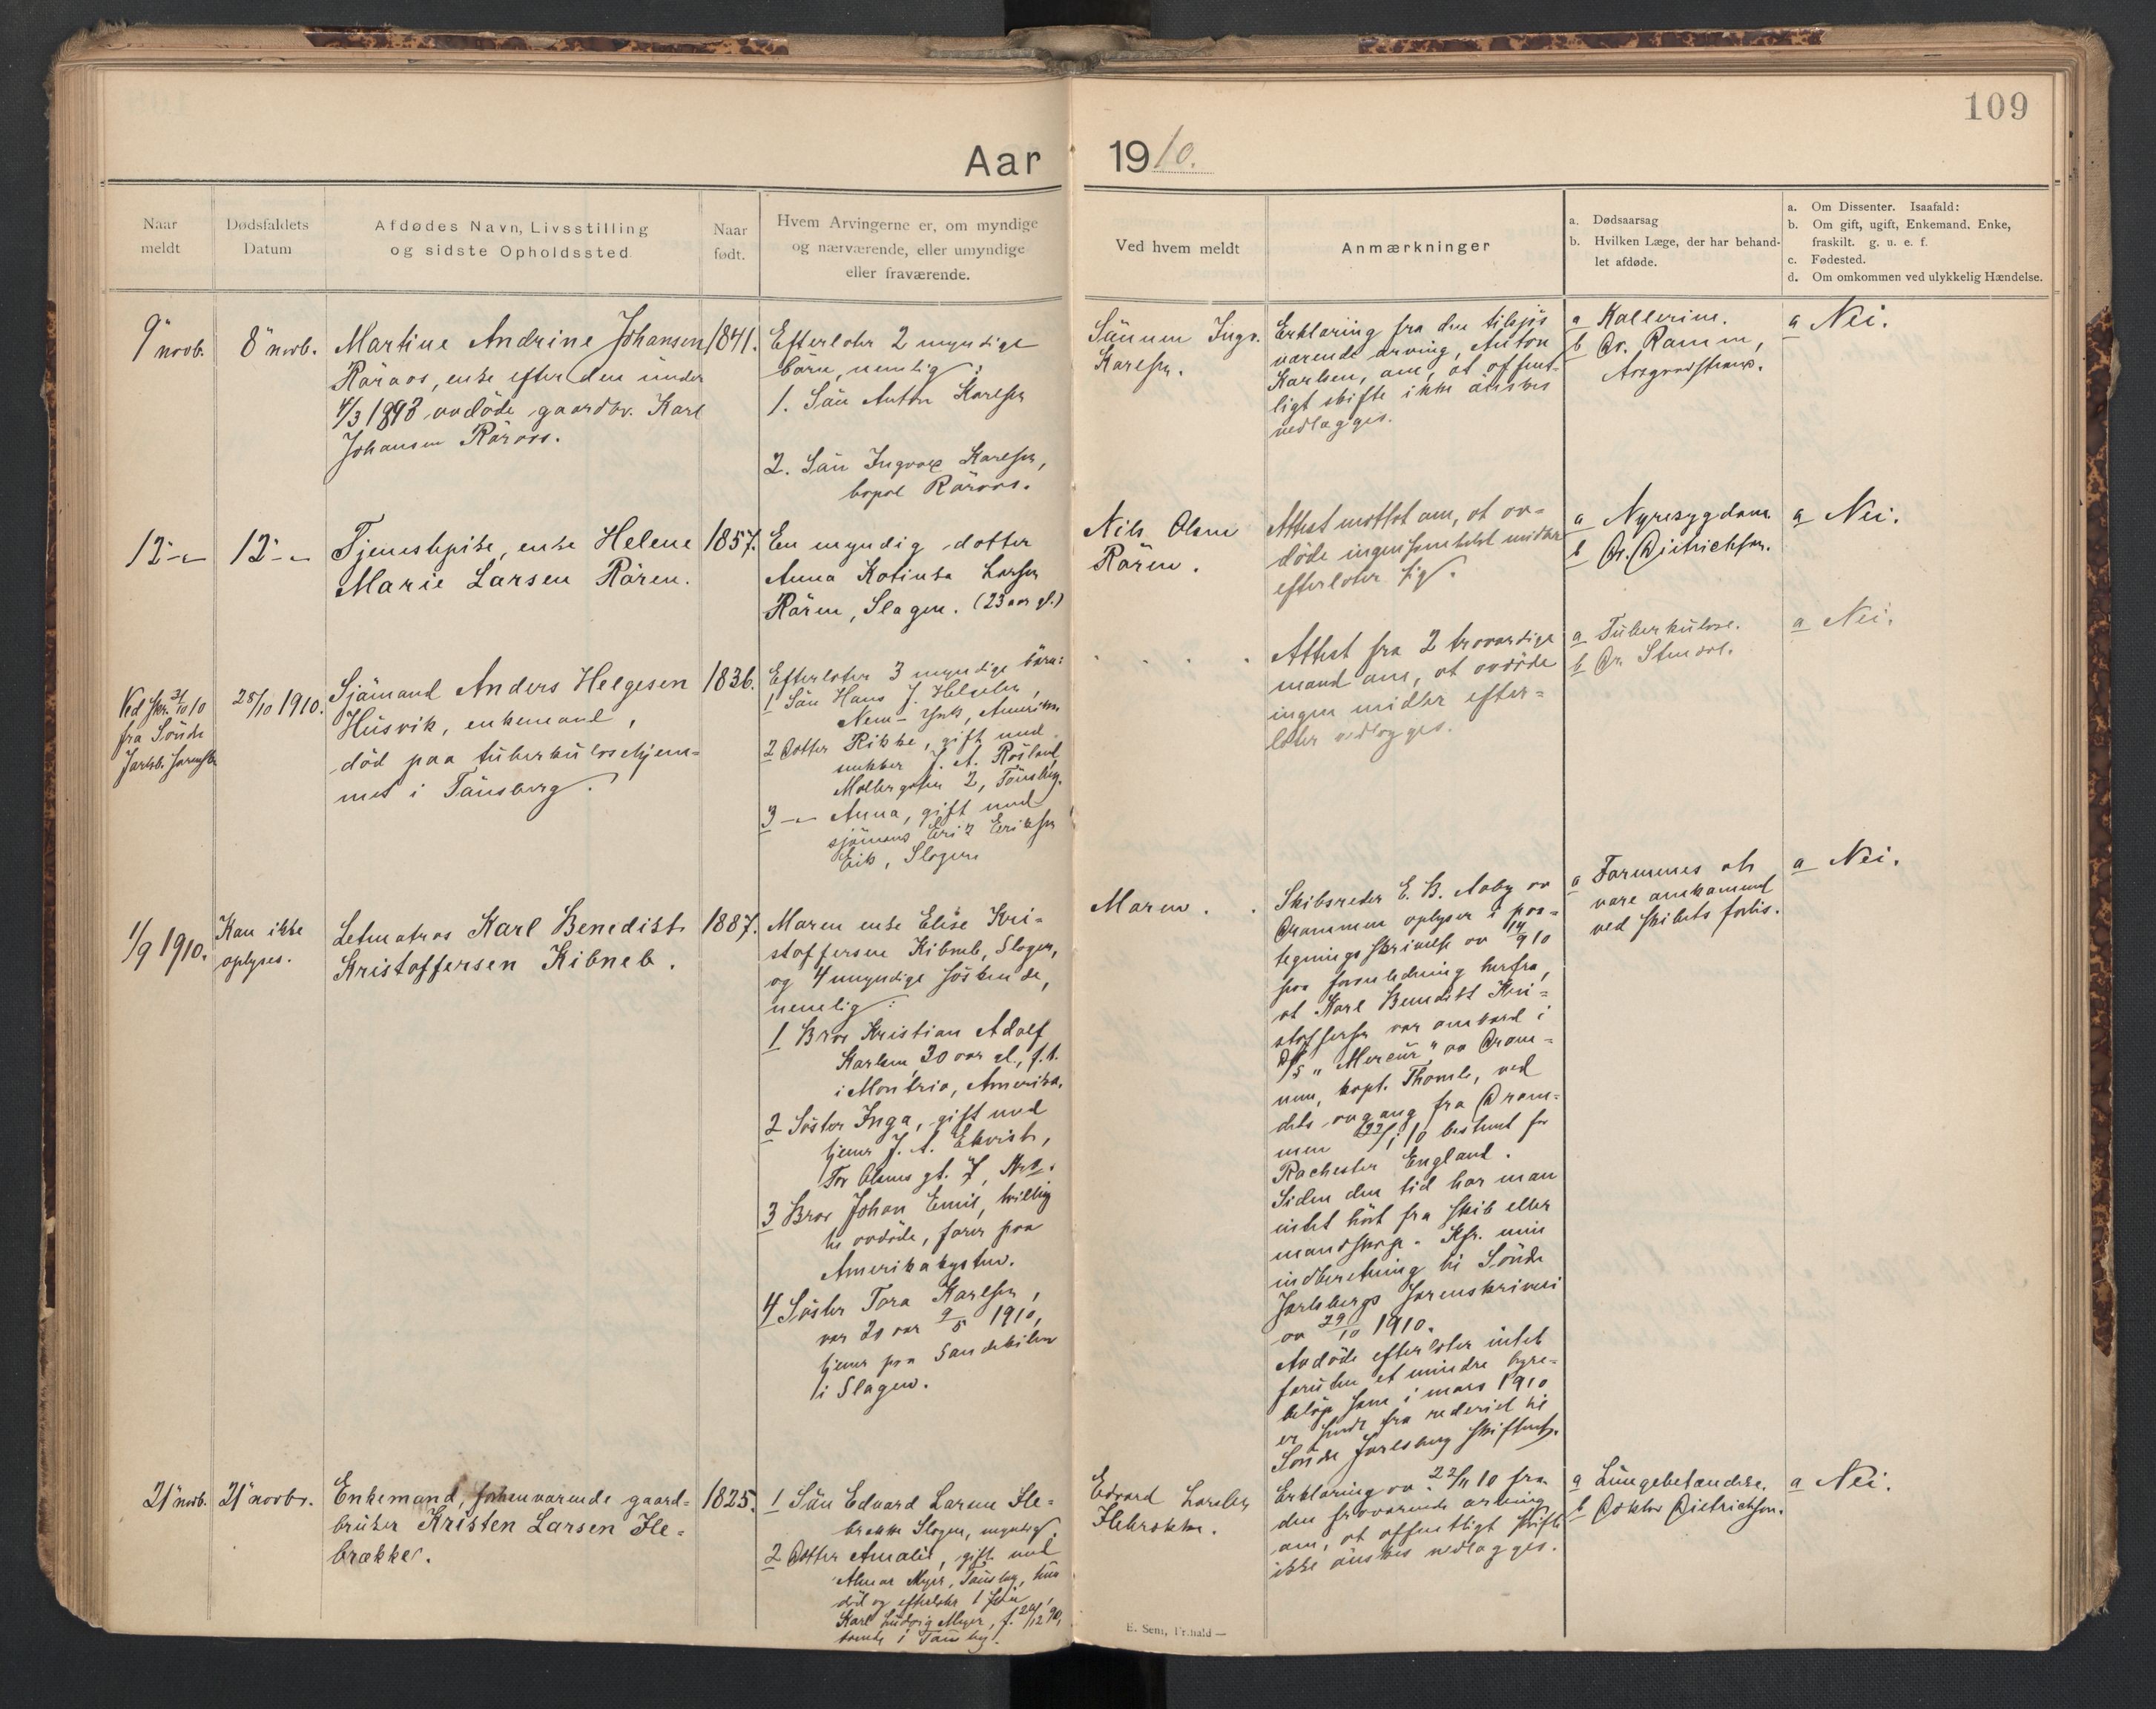 109
Aar 1910.
Naar
meldt
Dødsfaldets
Datum
Afdødes Navn, Livsstilling
og sidste Opholdssted
Naar
født.
Hvem Arvingerne er, om myndige
og nærværende, eller umyndige
eller fraværende.
Ved hvem meldt
Anmærkninger
a. Dødsaarsag
b. Hvilken Læge, der har behand-
let afdøde.
a. Om Dissenter. Isaafald:
b. Om gift, ugift, Enkemand. Enke,
fraskilt. g. u. e. f.
c. Fødested.
d. Om omkommen ved ulykkelig Hændelse.
9' novb.
8' novb.
Martine Andrine Johansen
Råraas, enke efter den under
4/3 1893 avdöde gaardbr. Karl
Johansen Råraas.
1841.
Efterlater 2 myndige
börn, nemlig:
1. Sön Anton Karlsen
2. Sön Ingvar Karlsen,
bopæl Råraas.
Sönnen Ingv.
Karlsen.
Erklæring fra den tilsjös
værende arving, Anton
Karlsen, om, at offent-
ligt skifte ikke önskes
vedlægges.
a Kallerin.
b Dr. Ramm,
Aasgaardstrand.
a Nei.
12'
12'
Tjenestepike, enke Helene
Marie Larsen Råren.
1857.
En myndig dotter
Anna Katinka Larsen
Råren, Slagen. (23 aar gl.)
Nils Olsen
Råren.
Attest mottat om, at av-
döde ingensomhelst midler
efterlater sig.
a Nyresygdom.
b Dr. Dietrichson.
a Nei.
Ved skr. 31/10 10
fra Söndre
Jarlsb. sorenskr.
28/10 1910.
Sjömand Anders Helgesen
Husvik, enkemand,
död paa tuberkulosehjem-
met i Tönsberg.
1836.
Efterlater 3 myndige börn:
1 Sön Hans J. Helgesen,
New-York, Amerika
2 Dotter Rikke, gift med
J. A. Rösland,
Möllergaten 2, Tönsberg.
3 Anna, gift med
sjömand Erik Eriksen
Eik, Slagen
Attest fra 2 troværdige
mænd om, at avdöde
ingen midler efter-
later vedlægges.
a Tuberkulose.
b Dr. Stendal.
a Nei.
1/9 1910.
Kan ikke
oplyses.
Letmatros Karl Benedikt
Kristoffersen Kibneb.
1887.
Moren enke Elise Kri-
stoffersen Kibneb, Slagen,
og 4 myndige söskende,
nemlig:
1 Bror Kristian Adolf
Karlsen, 30 aar gl., f. t.
i Amerika.
2 Söster Inga, gift med
J. A. Ekvist,
Tor Olsens gt. 7, Kra.
3 Bror Johan Emil, tvilling
til avdöde, farer paa
Amerikakysten.
4 Söster Tora Karlsen,
var 20 aar 9/5 1910,
tjener paa Sandekilen
i Slagen.
Moren.
Skibsreder E. B. Aaby av
Drammen oplyser i paa-
tegningsskrivelse av 14/9 10
paa foranledning herfra,
at Karl Benedikt Kri-
stoffersen var ombord i
D/S "Mercur" av Dram-
men, kapt. Thomle, ved
dets avgang fra Dram-
men 22/1 10 bestemt for
Rochester England.
Siden den tid har man
intet hört fra skib eller
mandskap. Kfr. min
indberetning til Söndre
Jarlsbergs sorenskriveri
av 29/10 1910.
Avdöde efterlater intet
foruten et mindre hyre-
belöp som i mars 1910
er sendt fra rederiet til
Söndre Jarlsberg skifteret.
a Formenes at
være omkommet
ved skibets forlis.
a Nei.
21' novb.
21' novbr.
Enkemand, forhenværende gaard-
bruker Kristen Larsen Fle-
brække.
1825.
1 Sön Edvard Larsen Fle-
brække Slagen, myndig.
2 Dotter Amalie, gift med
Meyer, Tönsberg, hun
död og efterlater 1 sön,
Karl Ludvig Meyer, f. 20/12 90,
boende i Tönsberg.
Edvard Larsen
Flebrække.
Erklæring av 22/11 10 fra
den fraværende arving
om, at offentligt skifte
ikke önskes vedlægges.
a Lungebetændelse.
b Doktor Dietrichson.
a Nei.
E. Sem, Fr.hald —